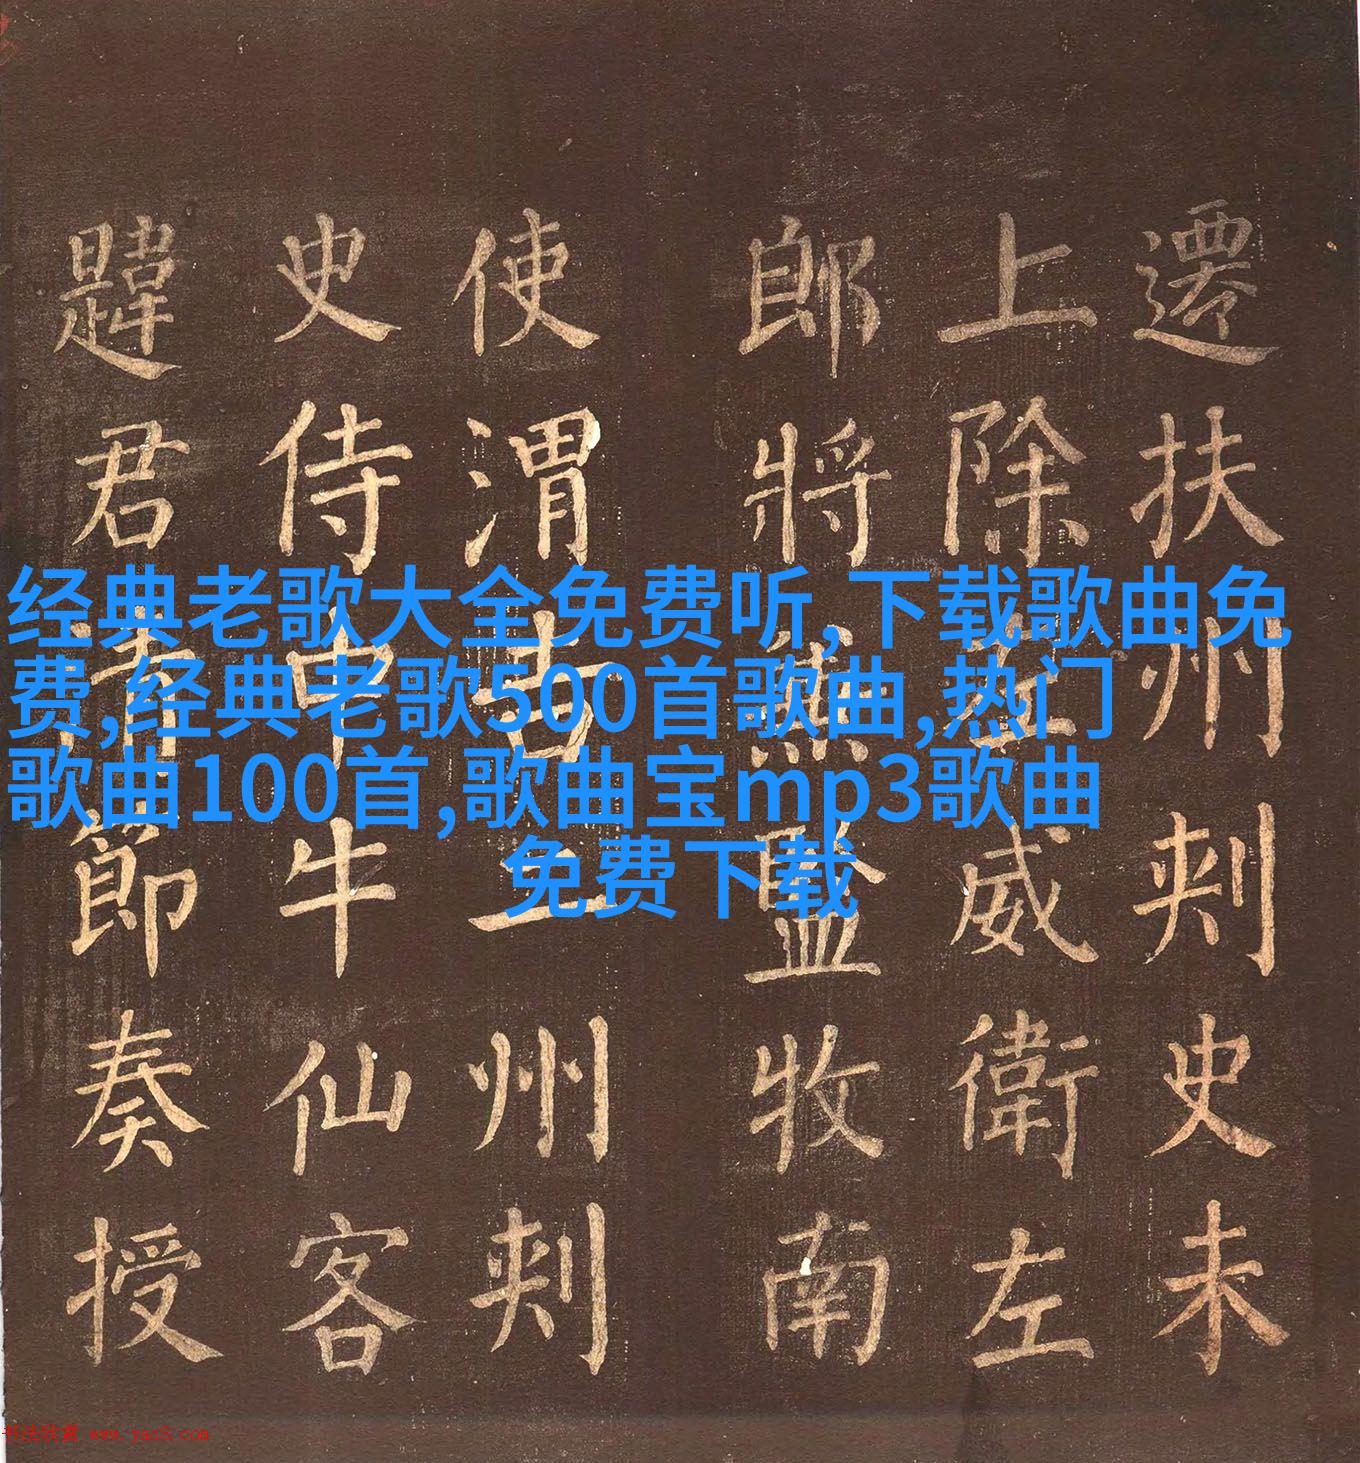 遷扶州刺史未
上除左威衛左
郎將兼監牧南
使渭吉二州刺
史侍中牛仙客
韙君清節奏授
经典老歌大全免费听,下载歌曲免
费,经典老歌500首歌曲,热门
歌曲100首,歌曲宝mp3歌曲
免费下载
书法欣赏 www.yac8.com